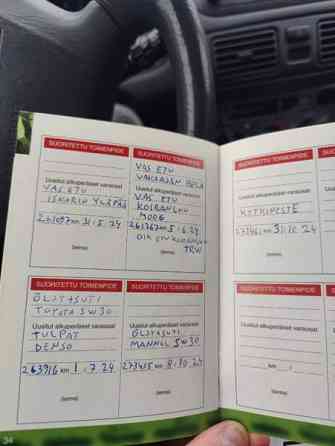 SUORITETTU TOIMENPIDE
Uusitut alkuperäiset varaosat
VAS ETU
ISKARIN YLÄPÄÄ
261097 km 31.5.24
(leima)
SUORITETTU TOIMENPIDE
VAS ETU
Uusitut alkuperäiset varaosat
VAS. ETU
KOIRANLUU
MOOG
261767 km 5.6.24
OIK ETU KOIRANLUU
TRW
(leima)
SUORITETTU TOIMENPIDE
Uusitut alkuperäiset varaosat
KYTKINNESTE
273461 km 31.10.24
(leima)
SUORITETTU TOIMENPIDE
ÖLJY+SUTI
TOYOTA 5W30
Uusitut alkuperäiset varaosat
TULPAT
DENSO
263916 km 1.7.24
(leima)
SUORITETTU TOIMENPIDE
Uusitut alkuperäiset varaosat
ÖLJY+SUTI
MANNOL 5W30
273415 km 8.10.24
(leima)
SUORITETTU TOIMENPIDE
Uusitut alkuperäiset varaosat
km
(leima)
34